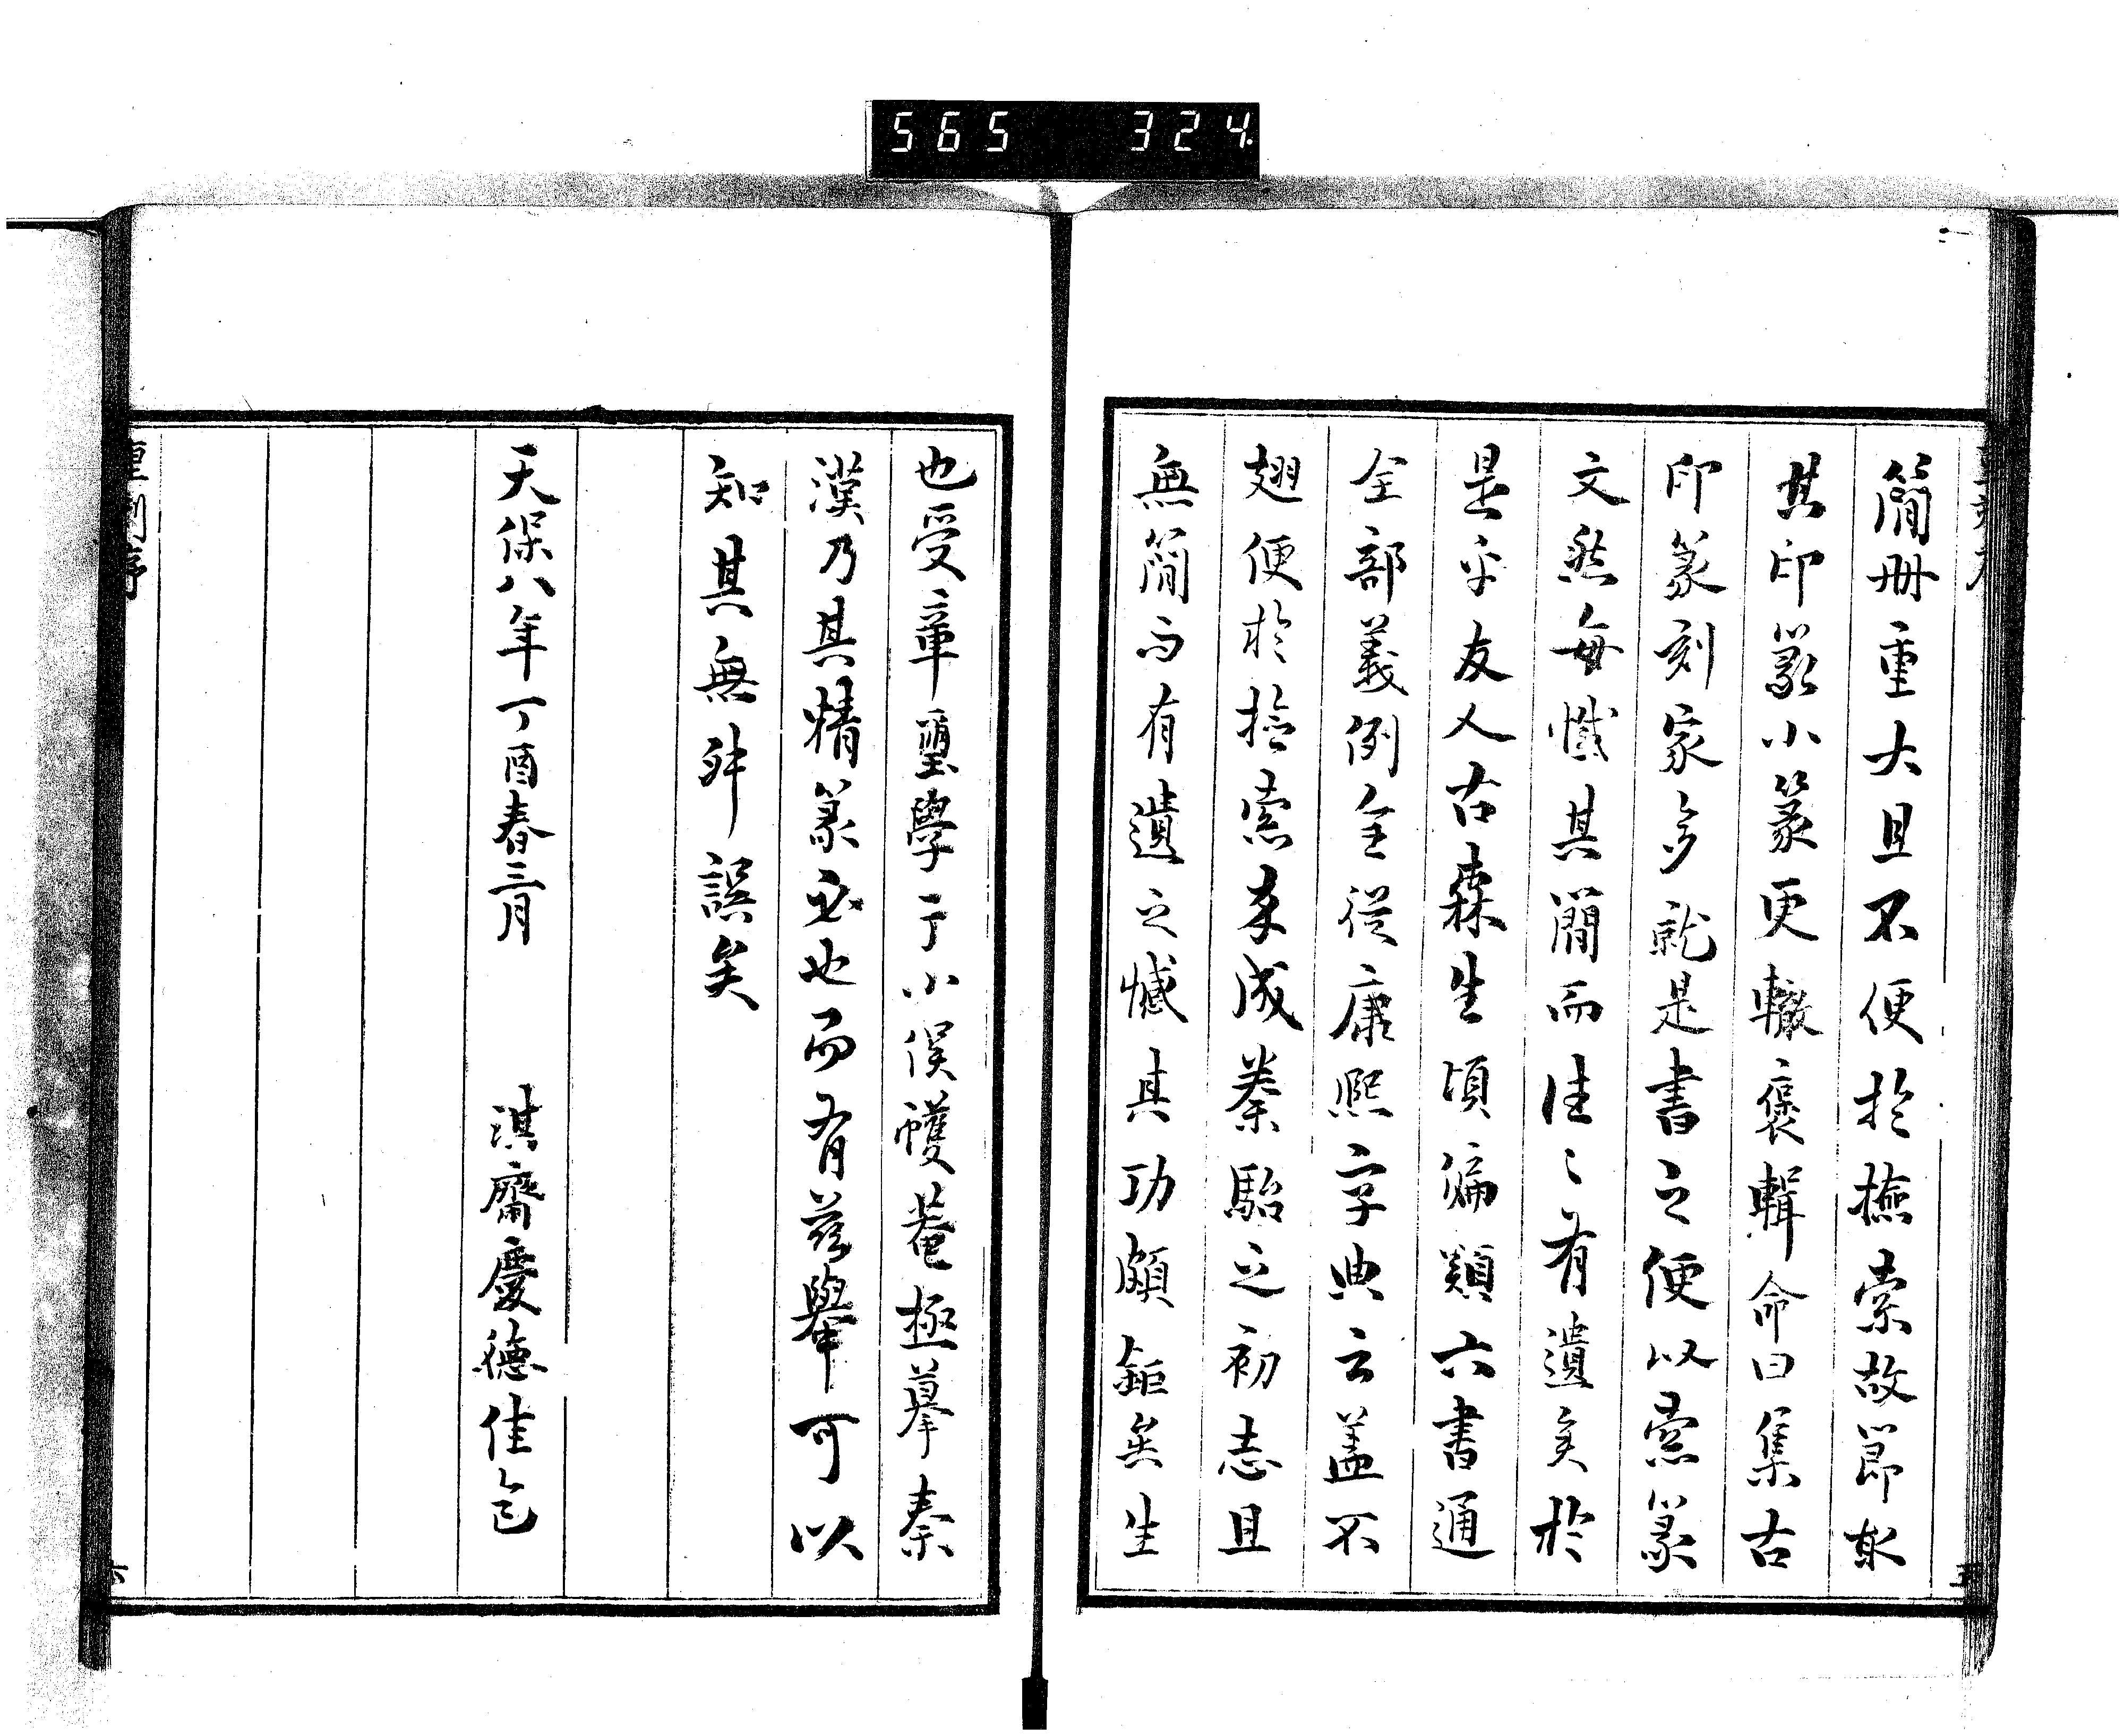 565 324
簡冊重大且不便於撿索故節取
其印篆小篆更轍裒輯命曰集古
印篆刻家多就是書之便以索篆
文然每憾其簡而往〻有遺矣於
是乎友人古森生頃偏類六書通
全部義例全從康熙字典云蓋不
翅便於撿索來成秦駘之初志且
無簡而有遺之憾其功頗鉅矣生
也受章璽學于小俣蠖菴極摹秦
漢乃其精篆必也而有茲舉可以
知其無舛誤矣
天保八年丁酉春三月 淇齋慶德佳乞
重刻序
五
六